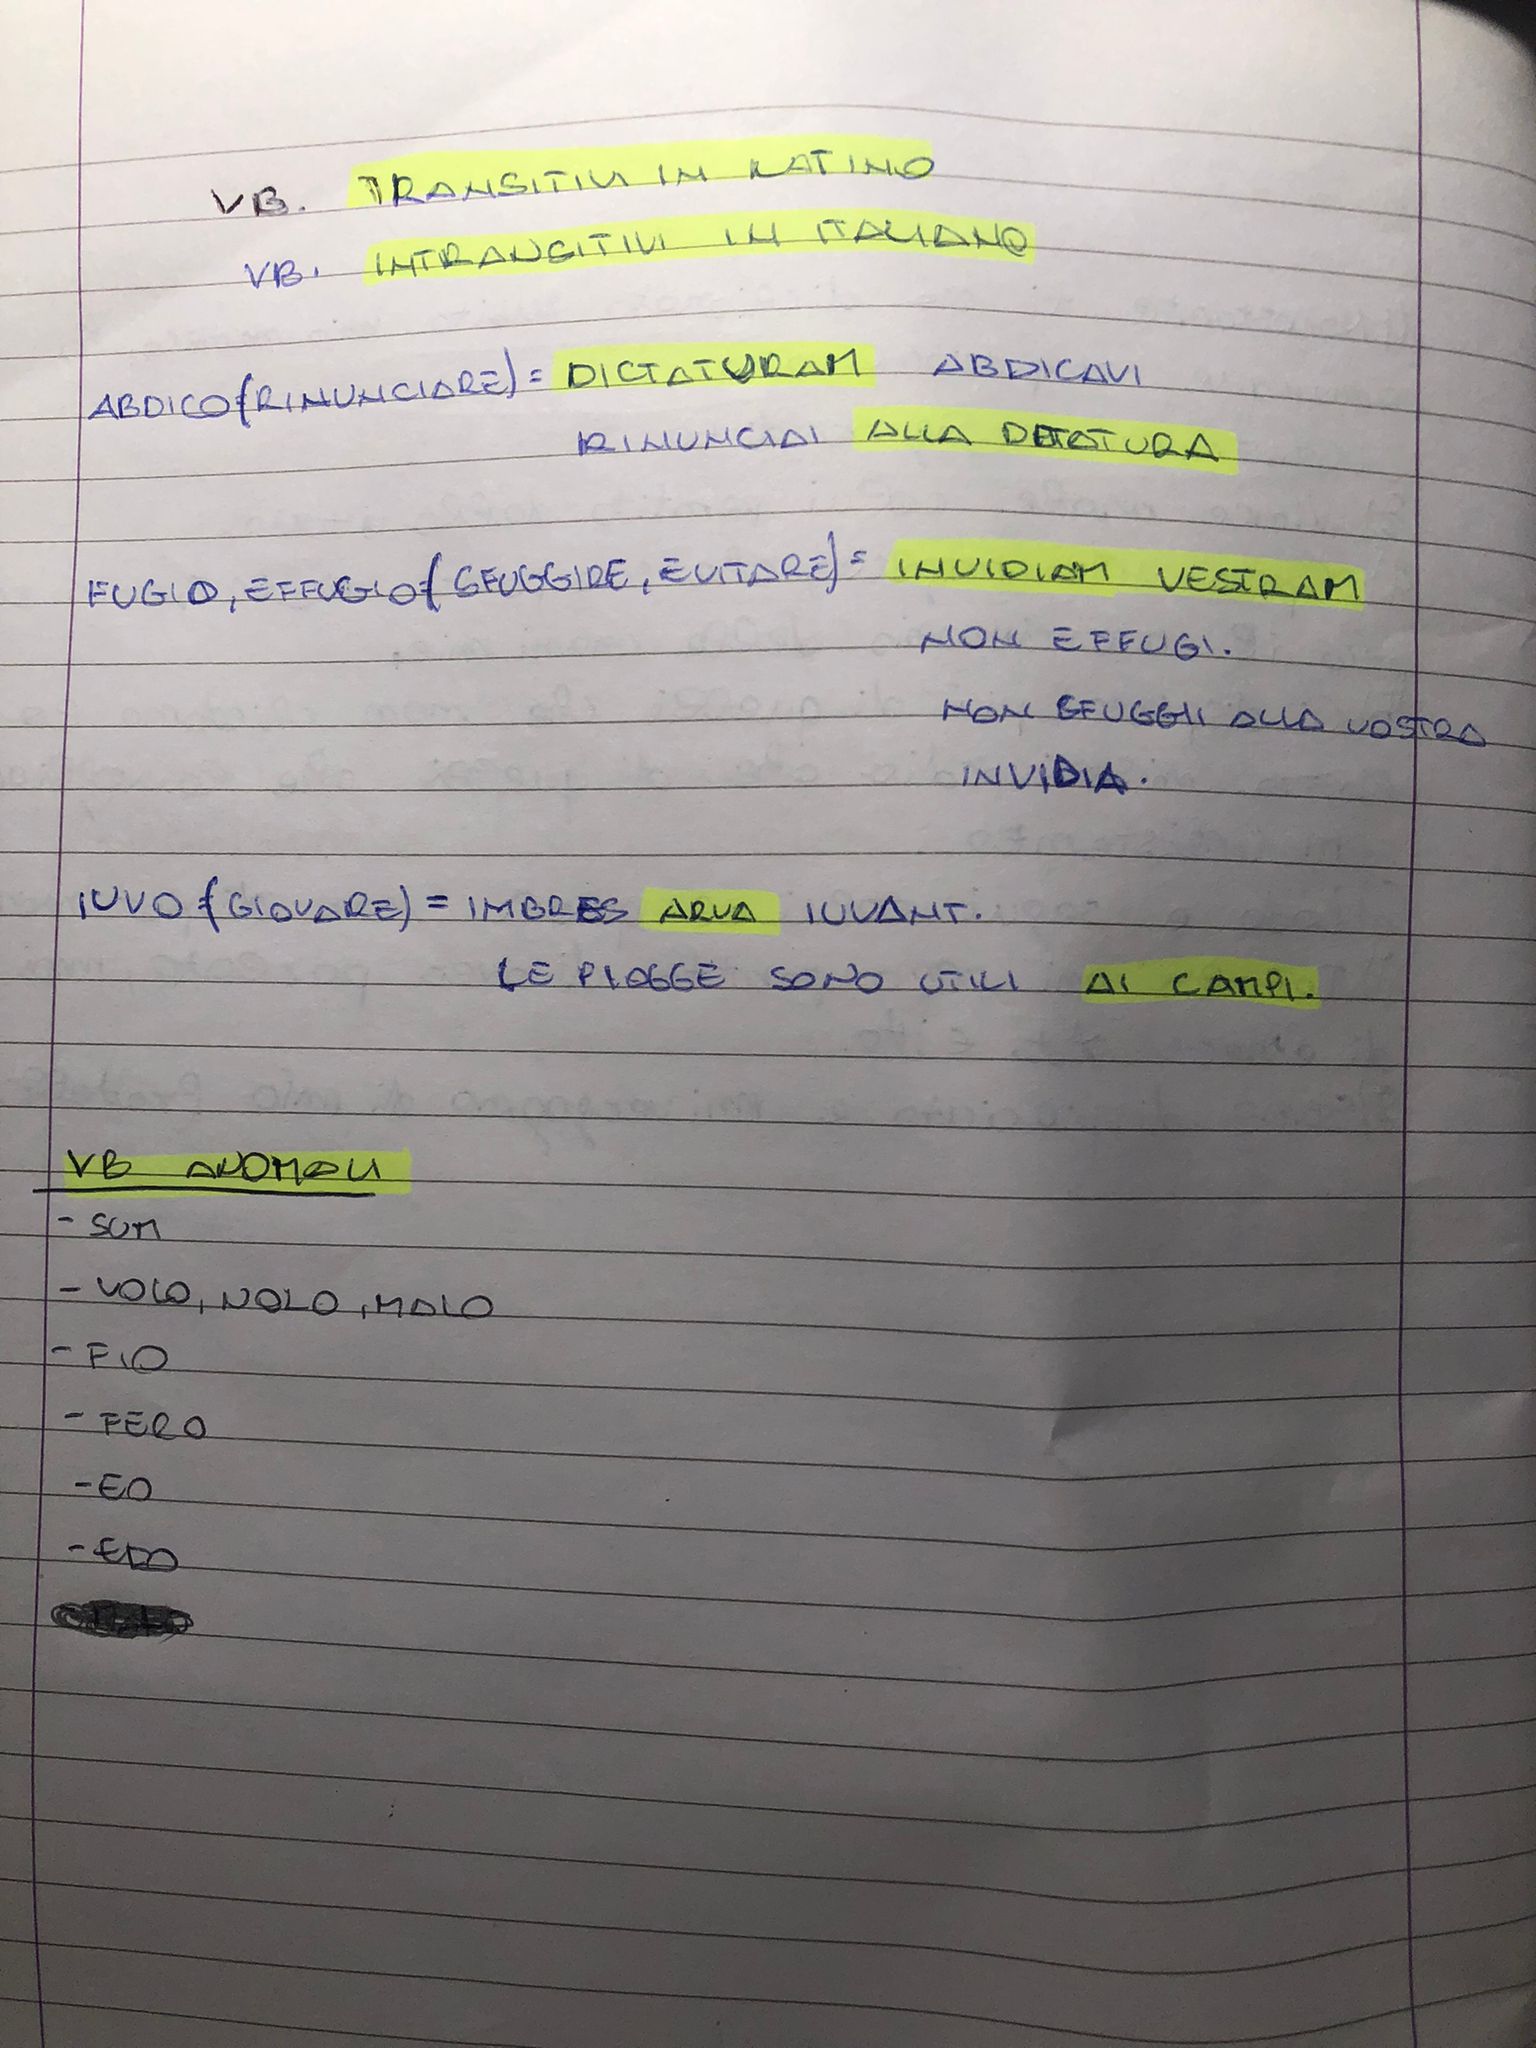 VB. TRANSITIVI IN LATINO
VB. INTRANSITIVI IN ITALIANO
ABDICO (RINUNCIARE) = DICTATURAM ABDICAVI
RINUNCIAI ALLA DITTATURA
FUGIO, EFFUGIO (SFUGGIRE, EVITARE) = INVIDIAM VESTRAM
NON EFFUGI.
NON SFUGGII ALLA VOSTRA
INVIDIA.
IUVO (GIOVARE) = IMBRES ARVA IUVANT.
LE PIOGGE SONO UTILI AI CAMPI.
VB ANOMALI
- SUM
- VOLO, NOLO, MALO
- FIO
- FERO
- EO
- EDO